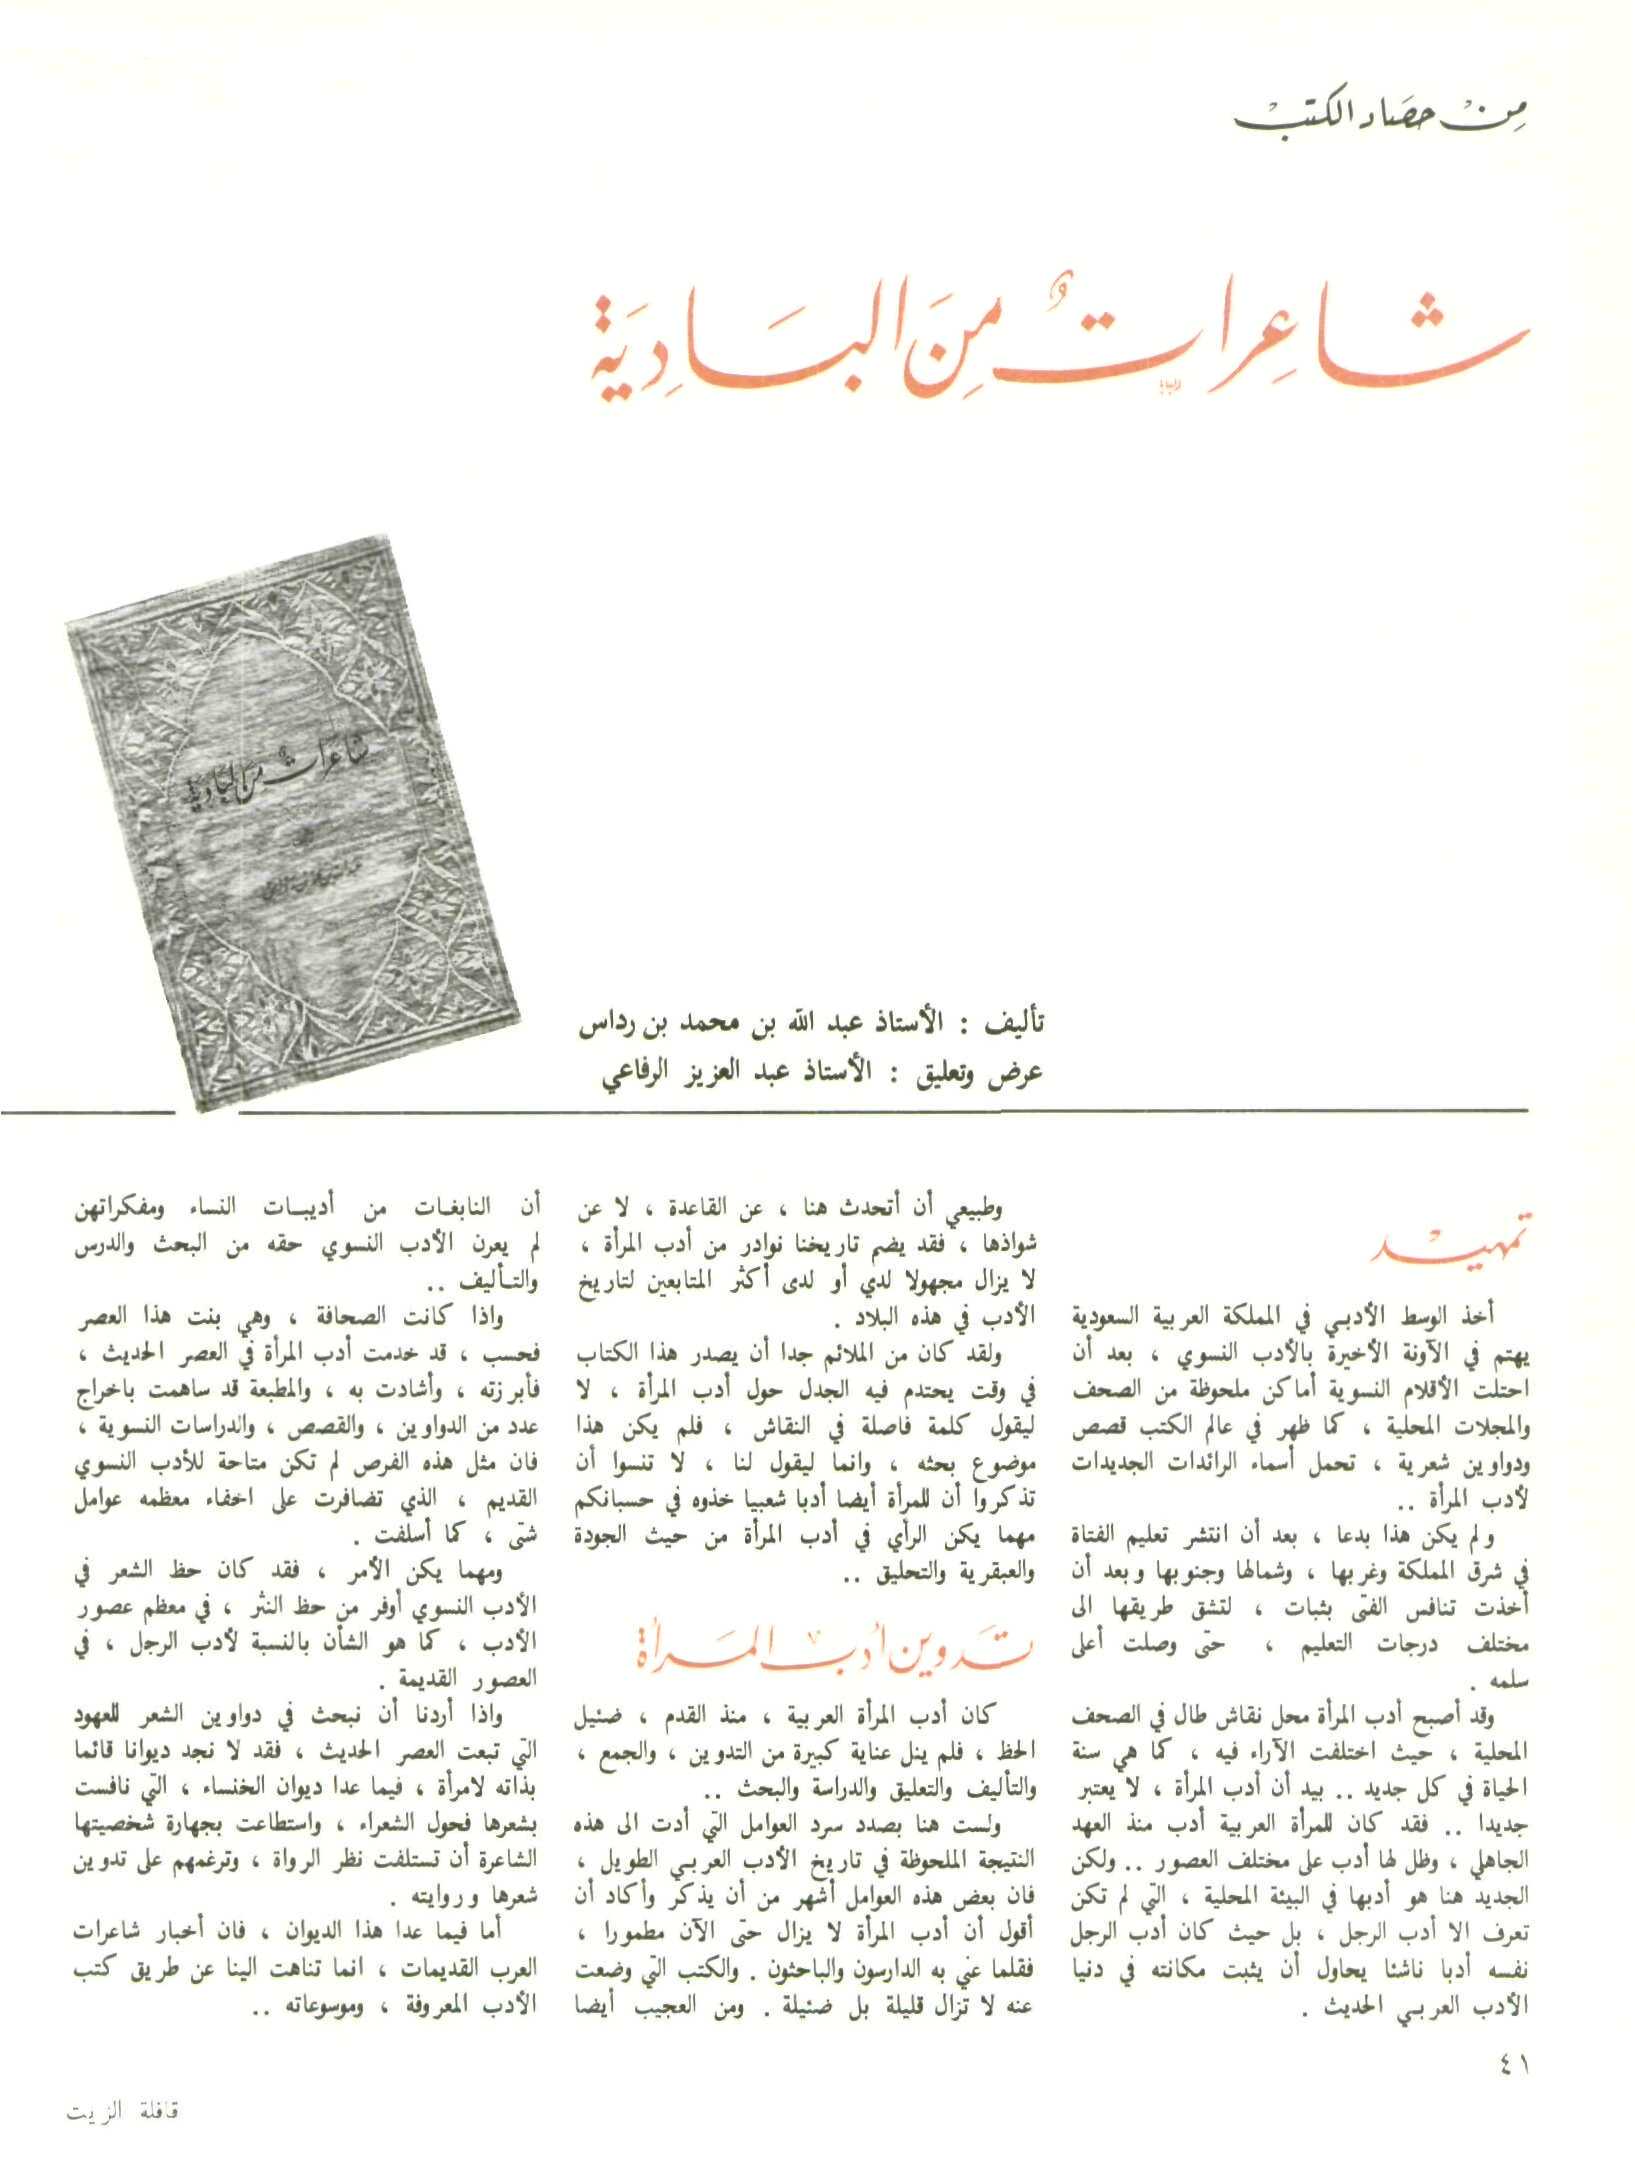 من حصاد الكتب
شاعراتٌ منَ البَاديَة
شاعرات من البادية
تأليف : الأستاذ عبد الله بن محمد بن رداس
عرض وتعليق : الأستاذ عبد العزيز الرفاعي
تمهيد
أخذ الوسط الأدبي في المملكة العربية السعودية
يهتم في الآونة الأخيرة بالأدب النسوي ، بعد أن
احتلت الأقلام النسوية أماكن ملحوظة من الصحف
والمجلات المحلية ، كما ظهر في عالم الكتب قصص
ودواوين شعرية ، تحمل أسماء الرائدات الجديدات
لأدب المرأة ..
ولم يكن هذا بدعا ، بعد أن انتشر تعليم الفتاة
في شرق المملكة وغربها ، وشمالها وجنوبها وبعد أن
أخذت تنافس الفتى بثبات ، لتشق طريقها الى
مختلف درجات التعليم ، حتى وصلت أعلى
سلمه .
وقد أصبح أدب المرأة محل نقاش طال في الصحف
المحلية ، حيث اختلفت الآراء فيه ، كما هي سنة
الحياة في كل جديد .. بيد أن أدب المرأة ، لا يعتبر
جديدا .. فقد كان للمرأة العربية أدب منذ العهد
الجاهلي ، وظل لها أدب على مختلف العصور .. ولكن
الجديد هنا هو أدبها في البيئة المحلية ، التي لم تكن
تعرف الا أدب الرجل ، بل حيث كان أدب الرجل
نفسه أدبا ناشئا يحاول أن يثبت مكانته في دنيا
الأدب العربي الحديث .
وطبيعي أن أتحدث هنا ، عن القاعدة ، لا عن
شواذها ، فقد يضم تاريخنا نوادر من أدب المرأة ،
لا يزال مجهولا لدي أو لدى أكثر المتابعين لتاريخ
الأدب في هذه البلاد .
ولقد كان من الملائم جدا أن يصدر هذا الكتاب
في وقت يحتدم فيه الجدل حول أدب المرأة ، لا
ليقول كلمة فاصلة في النقاش ، فلم يكن هذا
موضوع بحثه ، وانما ليقول لنا ، لا تنسوا أن
تذكروا أن للمرأة أيضا أدبا شعبيا خذوه في حسبانكم
مهما يكن الرأي في أدب المرأة من حيث الجودة
والعبقرية والتحليق ..
تدوين أدب المرأة
كان أدب المرأة العربية ، منذ القدم ، ضئيل
الحظ ، فلم ينل عناية كبيرة من التدوين ، والجمع ،
والتأليف والتعليق والدراسة والبحث ..
ولست هنا بصدد سرد العوامل التي أدت الى هذه
النتيجة الملحوظة في تاريخ الأدب العربي الطويل ،
فان بعض هذه العوامل أشهر من أن يذكر وأكاد أن
أقول أن أدب المرأة لا يزال حتى الآن مطمورا ،
فقلما عني به الدارسون والباحثون . والكتب التي وضعت
عنه لا تزال قليلة بل ضئيلة . ومن العجيب أيضا
أن النابغات من أديبات النساء ومفكراتهن
لم يعرن الأدب النسوي حقه من البحث والدرس
والتأليف ..
واذا كانت الصحافة ، وهي بنت هذا العصر
فحسب ، قد خدمت أدب المرأة في العصر الحديث ،
فأبرزته ، وأشادت به ، والمطبعة قد ساهمت باخراج
عدد من الدواوين ، والقصص ، والدراسات النسوية ،
فان مثل هذه الفرص لم تكن متاحة للأدب النسوي
القديم ، الذي تضافرت على اخفاء معظمه عوامل
شتى ، كما أسلفت .
ومهما يكن الأمر ، فقد كان حظ الشعر في
الأدب النسوي أوفر من حظ النثر ، في معظم عصور
الأدب ، كما هو الشأن بالنسبة لأدب الرجل ، في
العصور القديمة .
واذا أردنا أن نبحث في دواوين الشعر للعهود
التي تبعت العصر الحديث ، فقد لا نجد ديوانا قائما
بذاته لامرأة ، فيما عدا ديوان الخنساء ، التي نافست
بشعرها فحول الشعراء ، واستطاعت بجهارة شخصيتها
الشاعرة أن تستلفت نظر الرواة ، وترغمهم على تدوين
شعرها وروايته .
أما فيما عدا هذا الديوان ، فان أخبار شاعرات
العرب القديمات ، انما تناهت الينا عن طريق كتب
الأدب المعروفة ، وموسوعاته ..
٤١
قافلة الزيت